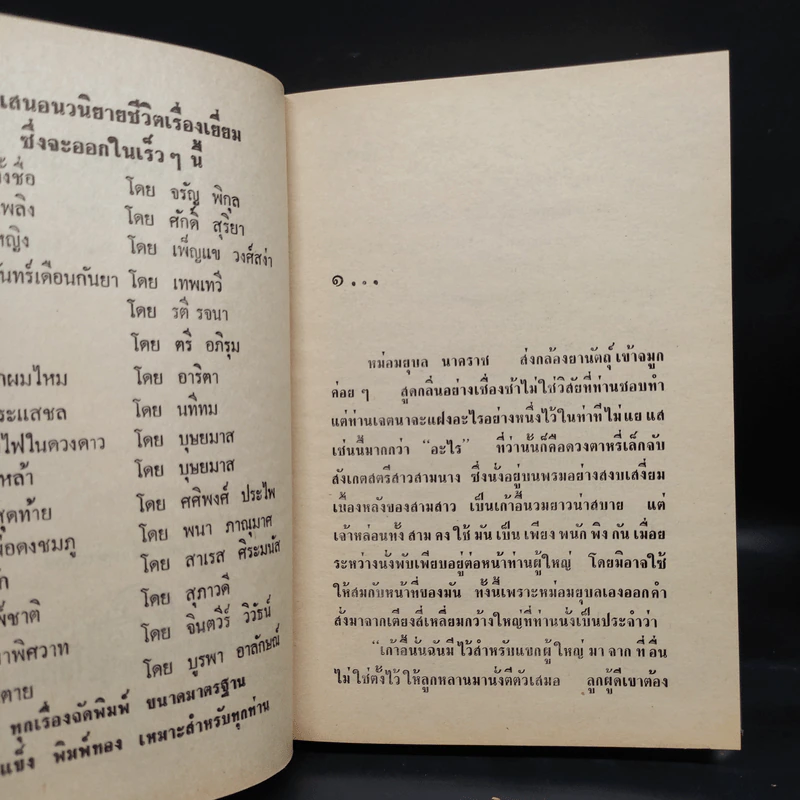 เสนอนวนิยายชีวิตเรื่องเยี่ยม
ซึ่งจะออกในเร็ว ๆ นี้
โดย จรัญ พิกุล
โดย ศักดิ์ สุริยา
โดย เพ็ญแข วงศ์สง่า
ันทร์เดือนกันยา โดย เทพเทวี
โดย รตี รจนา
โดย ตรี อภิรุม
ผมไหม โดย อาริตา
ระแสชล โดย นทีทม
ไฟในดวงดาว โดย บุษยมาส
หล้า โดย บุษยมาส
สุดท้าย โดย ศศิพงศ์ ประไพ
ดงชมภู โดย พนา ภาณุมาศ
โดย สาเรส ศิระมนัส
ชาติ โดย สุภาวดี
พิศวาท โดย จินตวีร์ วิวัธน์
ตาย โดย บูรพา อาลักษณ์
ทุกเรื่องจัดพิมพ์ ขนาดมาตรฐาน
แข็ง พิมพ์ทอง เหมาะสำหรับทุกท่าน
๑ ...
หม่อมยุบล นาคราช ส่งกล้องยานัตถุ์เข้าจมูก
ค่อย ๆ สูดกลิ่นอย่างเชื่องช้าไม่ใช่วิสัยที่ท่านชอบทำ
แต่ท่านเจตนาจะแฝงอะไรอย่างหนึ่งไว้ในท่าทีไม่แยแส
เช่นนี้มากกว่า “อะไร” ที่ว่านั้นก็คือดวงตาหรี่เล็กจับ
สังเกตสตรีสาวสามนาง ซึ่งนั่งอยู่บนพรมอย่างสงบเสงี่ยม
เบื้องหลังของสามสาว เป็นเก้าอี้นวมยาวน่าสบาย แต่
เจ้าหล่อนทั้งสามคงใช้มันเป็นเพียงพนักพิงกันเมื่อย
ระหว่างนั่งพับเพียบอยู่ต่อหน้าท่านผู้ใหญ่ โดยมิอาจใช้
ให้สมกับหน้าที่ของมัน ทั้งนี้เพราะหม่อมยุบลเองออกคำ
สั่งมาจากเตียงสี่เหลี่ยมกว้างใหญ่ที่ท่านนั่งเป็นประจำว่า
“เก้าอี้นั้นฉันมีไว้สำหรับแขกผู้ใหญ่มาจากที่อื่น
ไม่ใช่ตั้งไว้ให้ลูกหลานมานั่งตีตัวเสมอ ลูกผู้ดีเขาต้อง